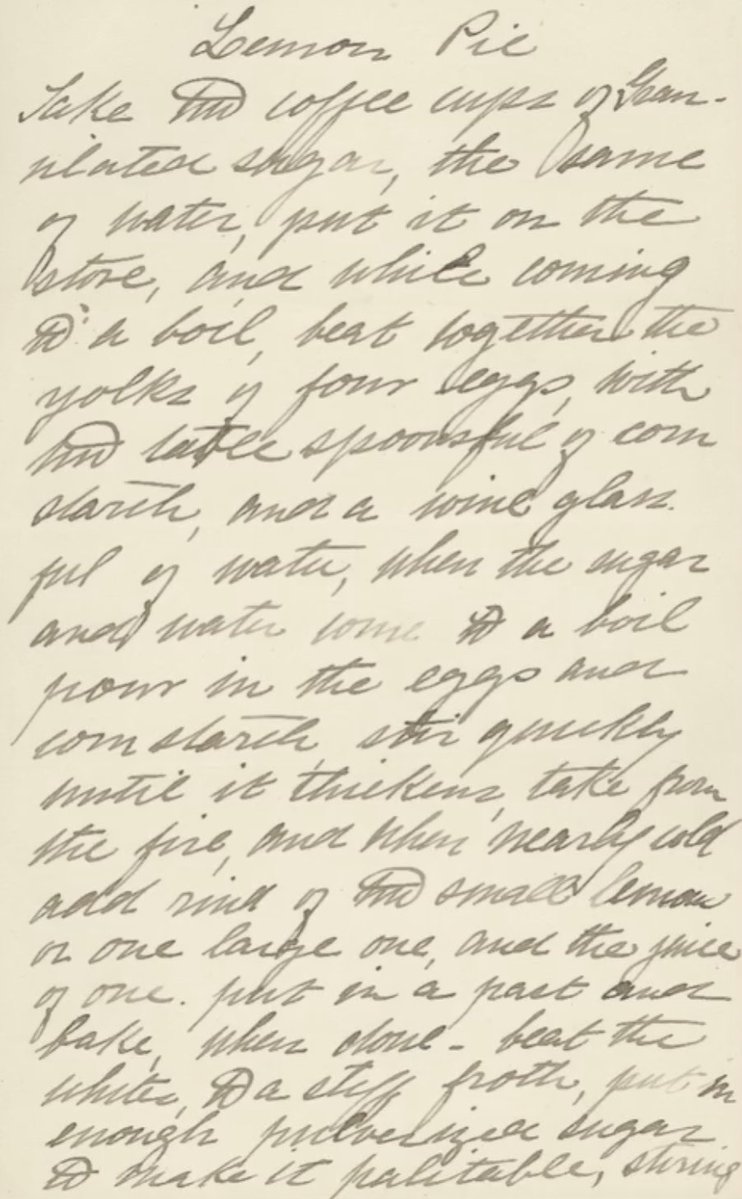 Lemon Pie
Take two coffee cups of Gran-
ulated sugar, the same
of water, put it on the
stove, and while coming
to a boil, beat together the
yolks of four eggs, with
two table spoonsful of corn
starch, and a wine glass
ful of water, when the sugar
and water come to a boil
pour in the eggs and
corn starch, stir quickly
until it thickens, take from
the fire, and when nearly cold
add rind of two small lemon
or one large one, and the juice
of one. put in a paste and
bake, when done - beat the
whites, to a stiff froth, put in
enough pulverized sugar
to make it palitable, stiring